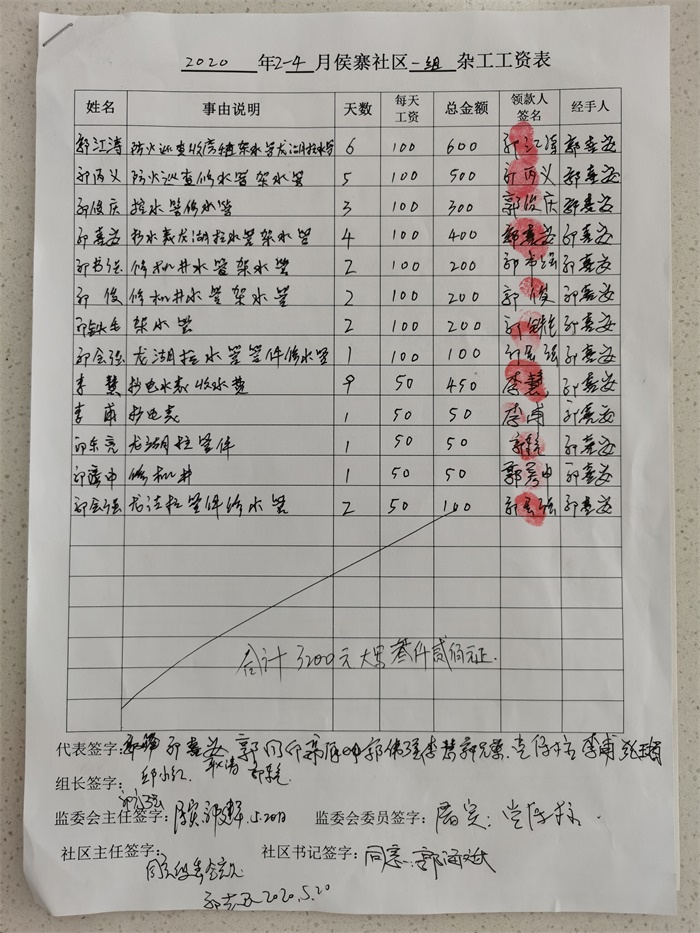 2020 年2-4月侯寨社区一组杂工工资表
姓名 事由说明 天数 每天工资 总金额 领款人签名 经手人
郭江涛 防火巡查收房租架水管龙湖拉水管 6 100 600 郭江涛 郭喜安
郭丙义 防火巡查修水管架水管 5 100 500 郭丙义 郭喜安
郭俊庆 拉水管修水管 3 100 300 郭俊庆 郭喜安
郭喜安 抄水表龙湖拉水管架水管 4 100 400 郭喜安 郭喜安
郭书强 修机井水管架水管 2 100 200 郭书强 郭喜安
郭俊 修机井水管架水管 2 100 200 郭俊 郭喜安
架水管 2 100 200 郭喜安
郭会强 龙湖拉水管管件修水管 1 100 100 郭会强 郭喜安
李慧 抄电水表收水费 9 50 450 李慧 郭喜安
李甫 抄电表 1 50 50 李甫 郭喜安
郭东亮 龙湖拉管件 1 50 50 郭喜安
修机井 1 50 50 郭喜安
郭会强 龙湖拉管件修水管 2 50 100 郭会强 郭喜安
合计3200元大写叁仟贰佰元正.
代表签字: 郭喜安 李慧 李甫
组长签字: 郭小红.
监委会主任签字: 5.20日 监委会委员签字:
社区主任签字: 社区书记签字: 同意:
2020.5.20